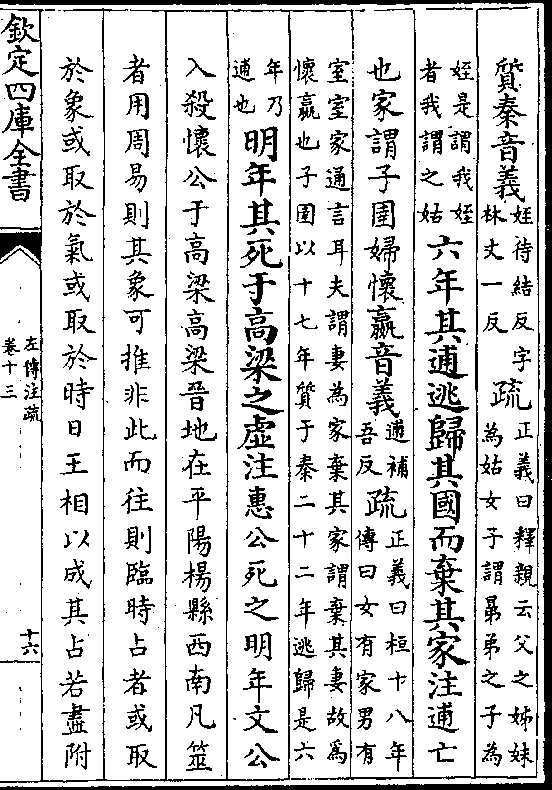 質秦音義姪待結反字林丈一反疏正義曰釋親云父之姊妹為姑女子謂晜弟之子為
姪是謂我姪者我謂之姑六年其逋逃歸其國而棄其家注逋亡
也家謂子圉婦懷嬴音義逋補吾反疏正義曰桓十八年傳曰女有家男有
室室家通言耳夫謂妻為家棄其家謂棄其妻故為懷嬴也子圉以十七年質于秦二十二年逃歸是六
年乃逋也明年其死于高梁之虛注惠公死之明年文公
入殺懷公于高梁高梁晉地在平陽楊縣西南凡筮
者用周易則其象可推非此而往則臨時占者或取
於象或取於氣或取於時日王相以成其占若盡附
欽定四庫全書
左傳注疏
卷十三
十六